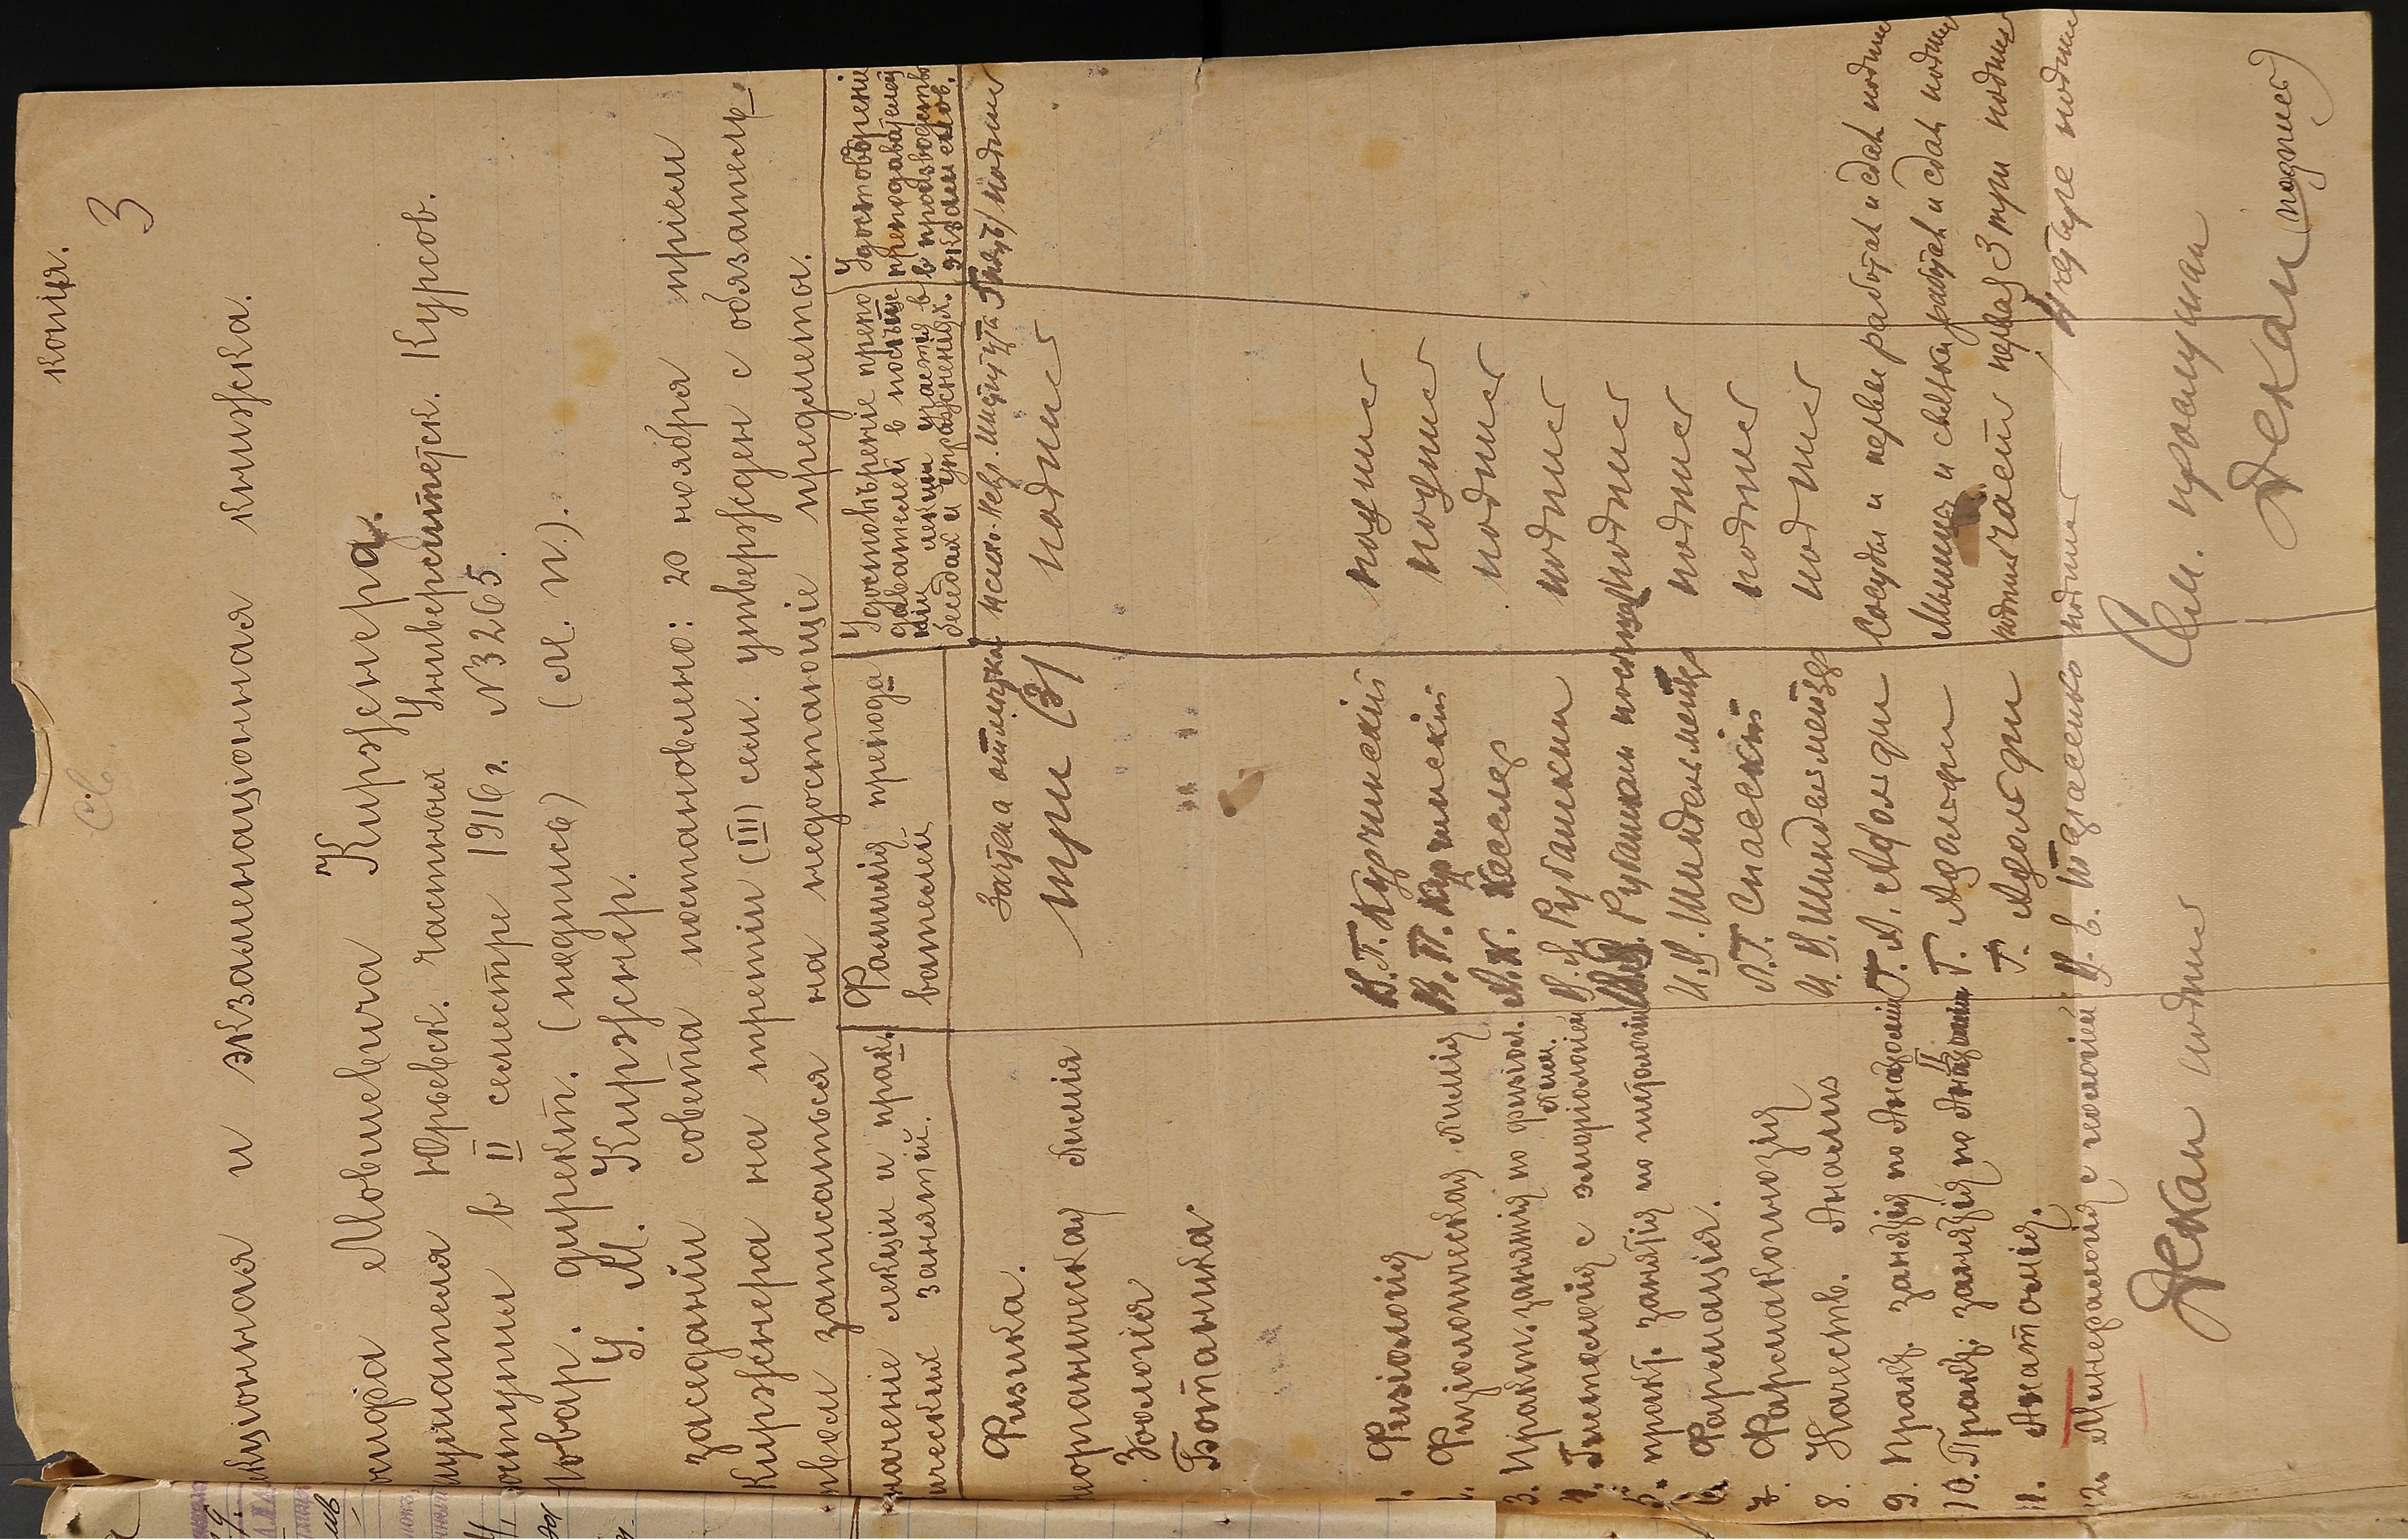 копія.
3
кціонная и экзаменаціонная книжка.
Мовшевича Киржнера.
Юрьевск. частных Университетск. Курсов.
в II семестре 1916 г. № 3265.
Товар. директ. (подпись) (м. п.).
У. М. Киржнер.
заседаніи совета постановлено: 20 ноября пріем
Киржнера на третіи (III) сем. утвержден с обязатель-
записаться на недостающіе предметы.
лекціи и прак-
ических занятій.
Фамилія препода-
вателей
Удостоверение препо
давателей в посеще
ніи лекціи участія в
беседах и упражненіях.
Удостоверенiе
преподавателей
в производстве
экзаменов.
Физика.
три (3)
подпис
неорганическая химія
Зоологія
Ботаника
1. Физіологія В. П. Курчинскій подпис
2. Физіологическая химія В. П. Курчинскій подпис
3. Практ. занятія по физіол. хим. А. К. Кесслер подпис
4. Гистологія с эмбріологіей Рубашкин подпис
5. практ. занятія по гистологіи Рубашкин подпис
6. Фармація. И. И. Шиндельмейзер подпис
7. Фармакогнозія Л. Т. Спасскій подпис
8. Качеств. Анализ И. И. Шиндельмейзер подпис
9. Практ. занятія по Анатоміи Г. А. Адольфи Сосуды и нервы работал и сдал подпис
10. Практ. занятія по Анатоміи II Г. Адольфи Мышцы и связки работал и сдал подпис
11. Анатомія. Г. Адольфи подпис часть первая 3 три подпис
12. Минералогія с геологіей подпис 4 четыре подпис
Декан подпис
Сем. прослушан
Декан (подпись)